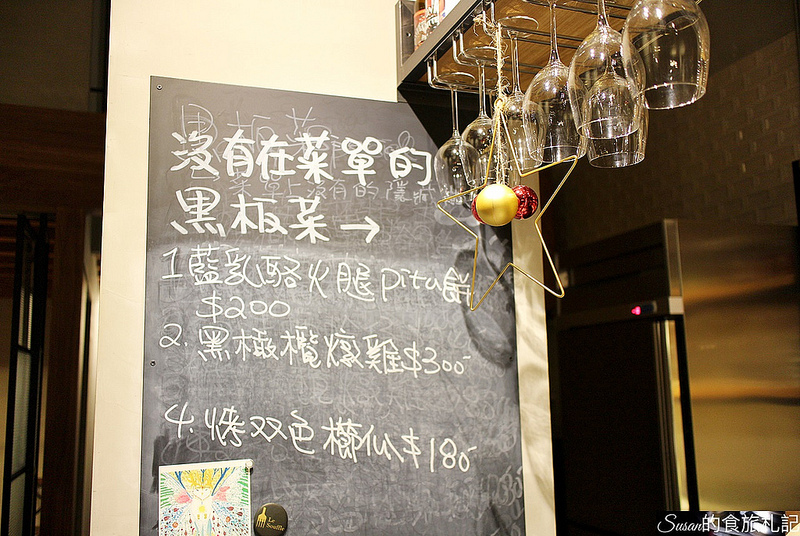 沒有在菜單的
黑板菜→
1 藍乳酪火腿pita餅
$200
2. 黑橄欖燉雞$300
4. 烤双色櫛瓜$180
Le
Souffle
Susan的食旅札記